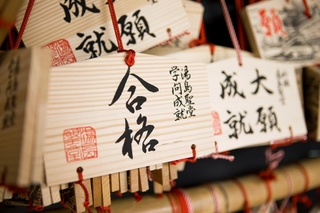 成就
合格
湯島聖堂
学問成就
大願
成就
成
願